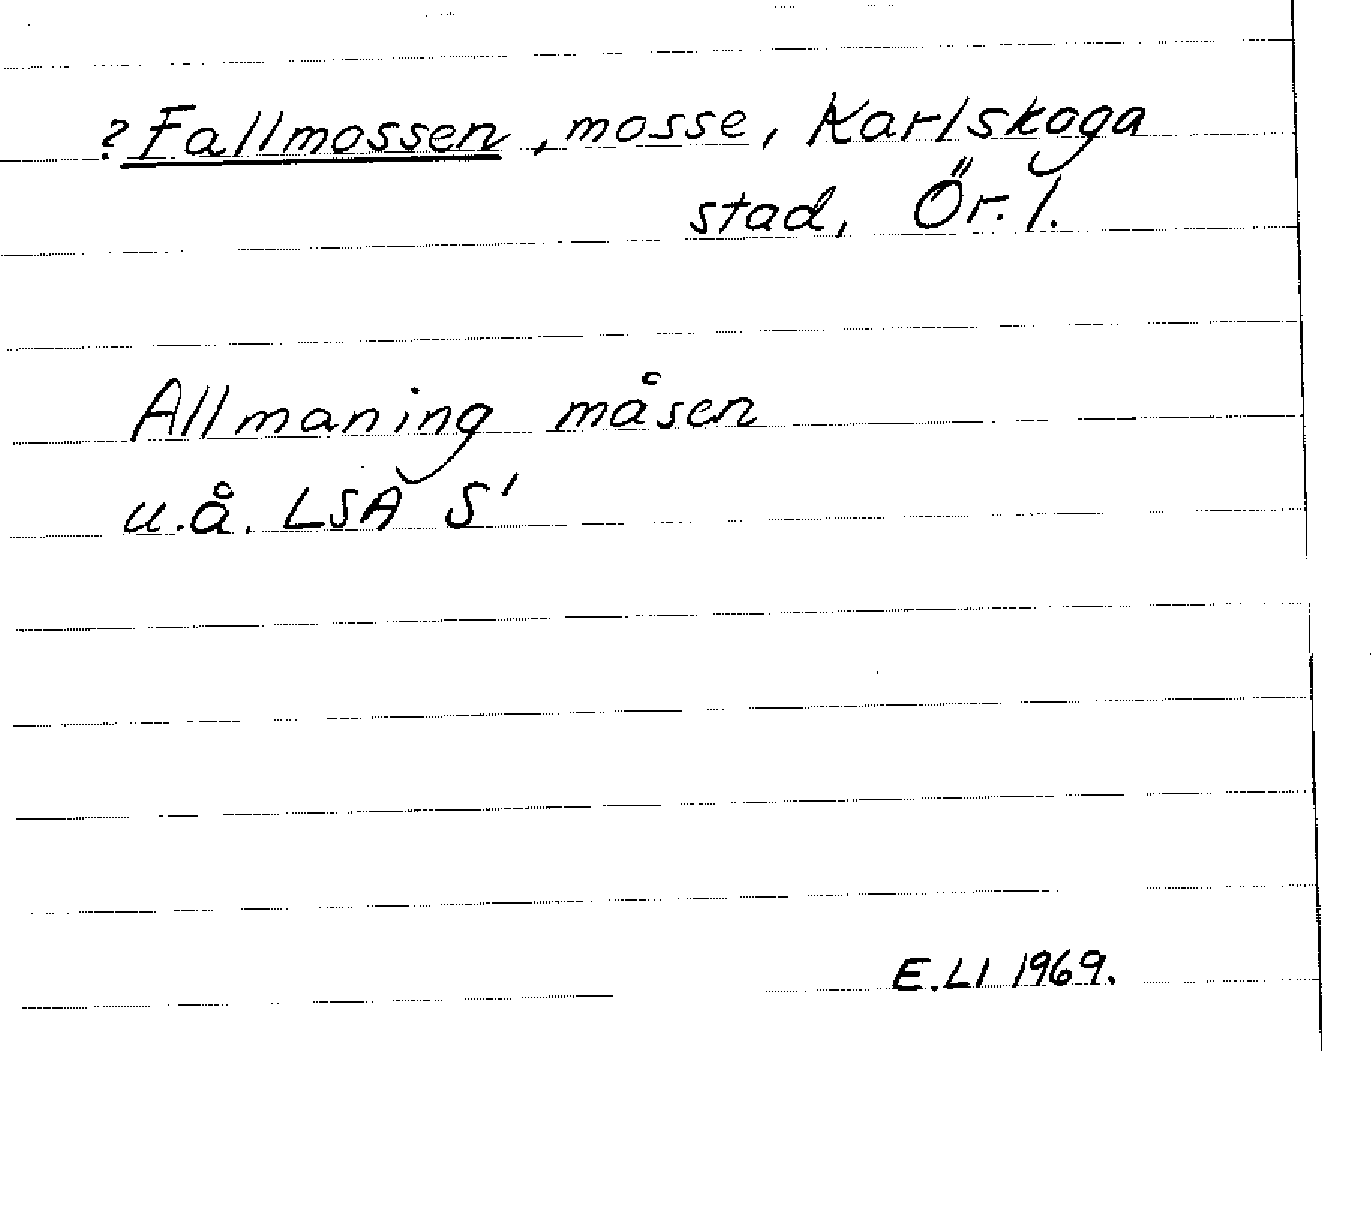 ?Fallmossen, mosse, Karlskoga
stad, Ör. l.
Allmaning måsen
u.å. LSA S'
E.LI 1969.